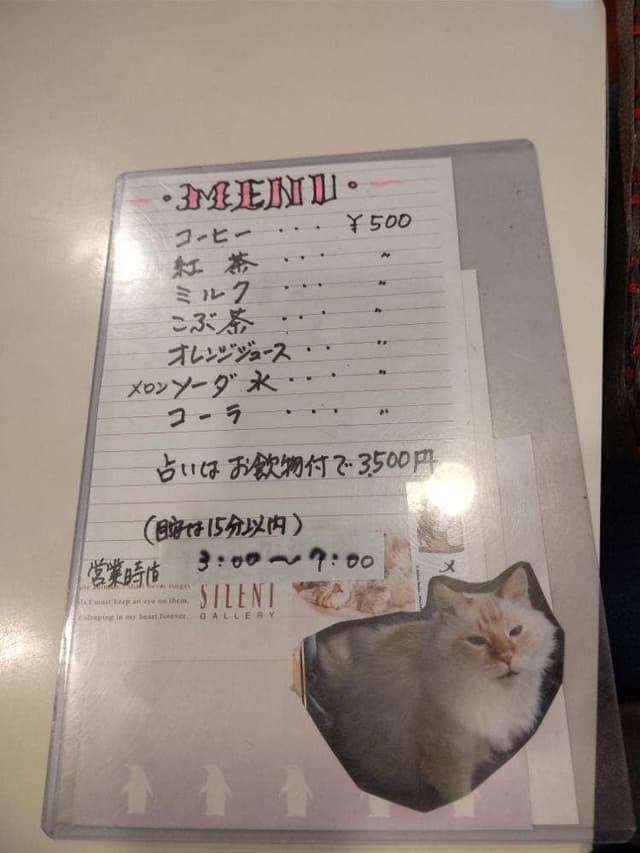 ・MENU・
コーヒー ・・・ ¥500
紅茶 ・・・ 〃
ミルク ・・・ 〃
こぶ茶 ・・・ 〃
オレンジジュース ・・・ 〃
メロンソーダ水 ・・・ 〃
コーラ ・・・ 〃
占いは お飲物付で 3,500円
(時は15分以内)
営業時 3:00〜7:00
I must keep an eye on them.
sleeping in my heart forever.
SILENT
GALLERY